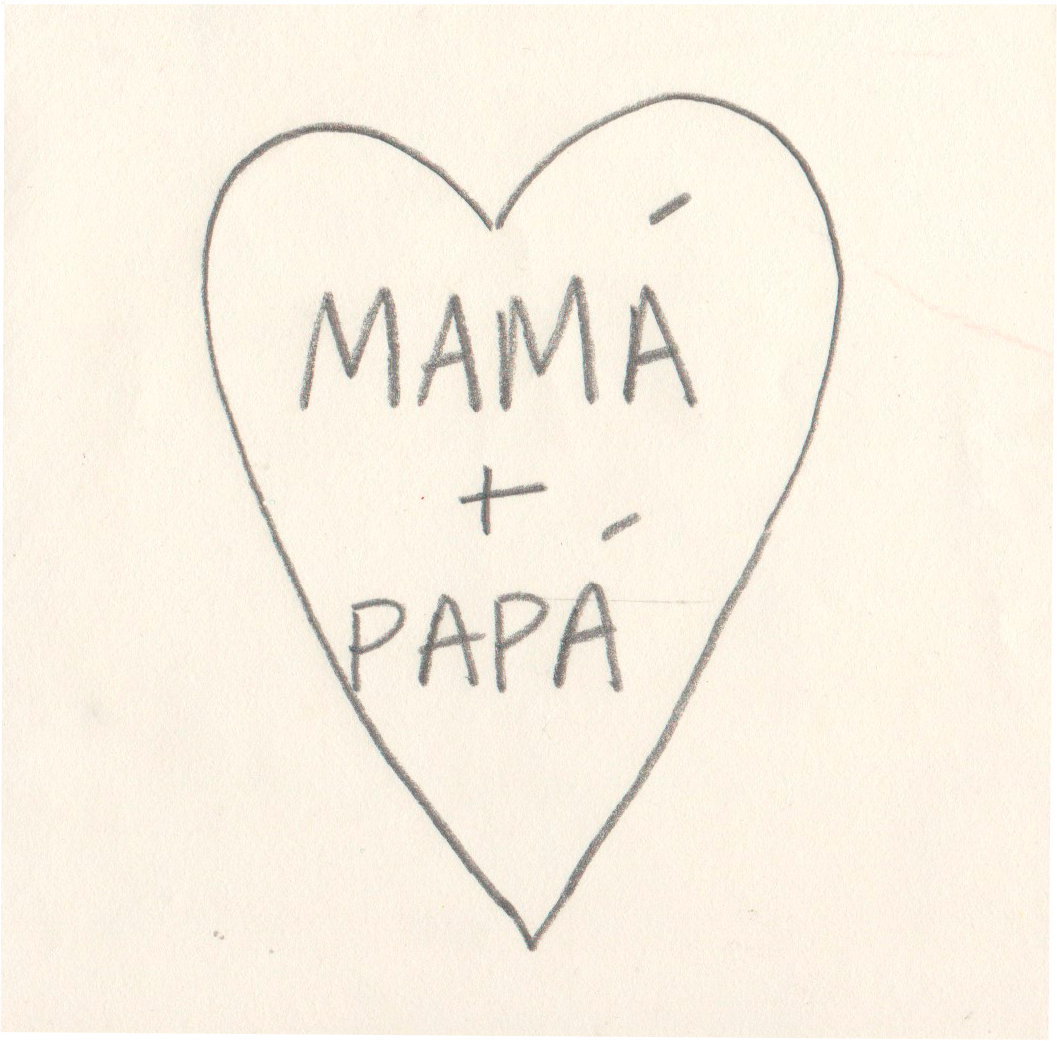 MAMÁ
+
PAPÁ